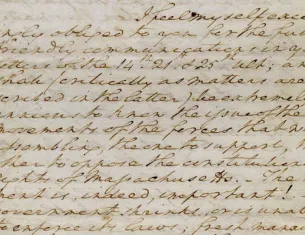 I feel myself exce
ingly obliged to you for the full
friendly communications in your
letters of the 14th 21 & 25 Ult; and
shall (critically as matters are
scribed in the latter) been tremely
anxious to know the issue of the
movements of the forces that w
assembling, the one to support, t
ther to oppose the constitution
rights of Massachusetts. The
ment is, indeed, important!
overnment shrinks, or is una
enforce its laws; fresh mana